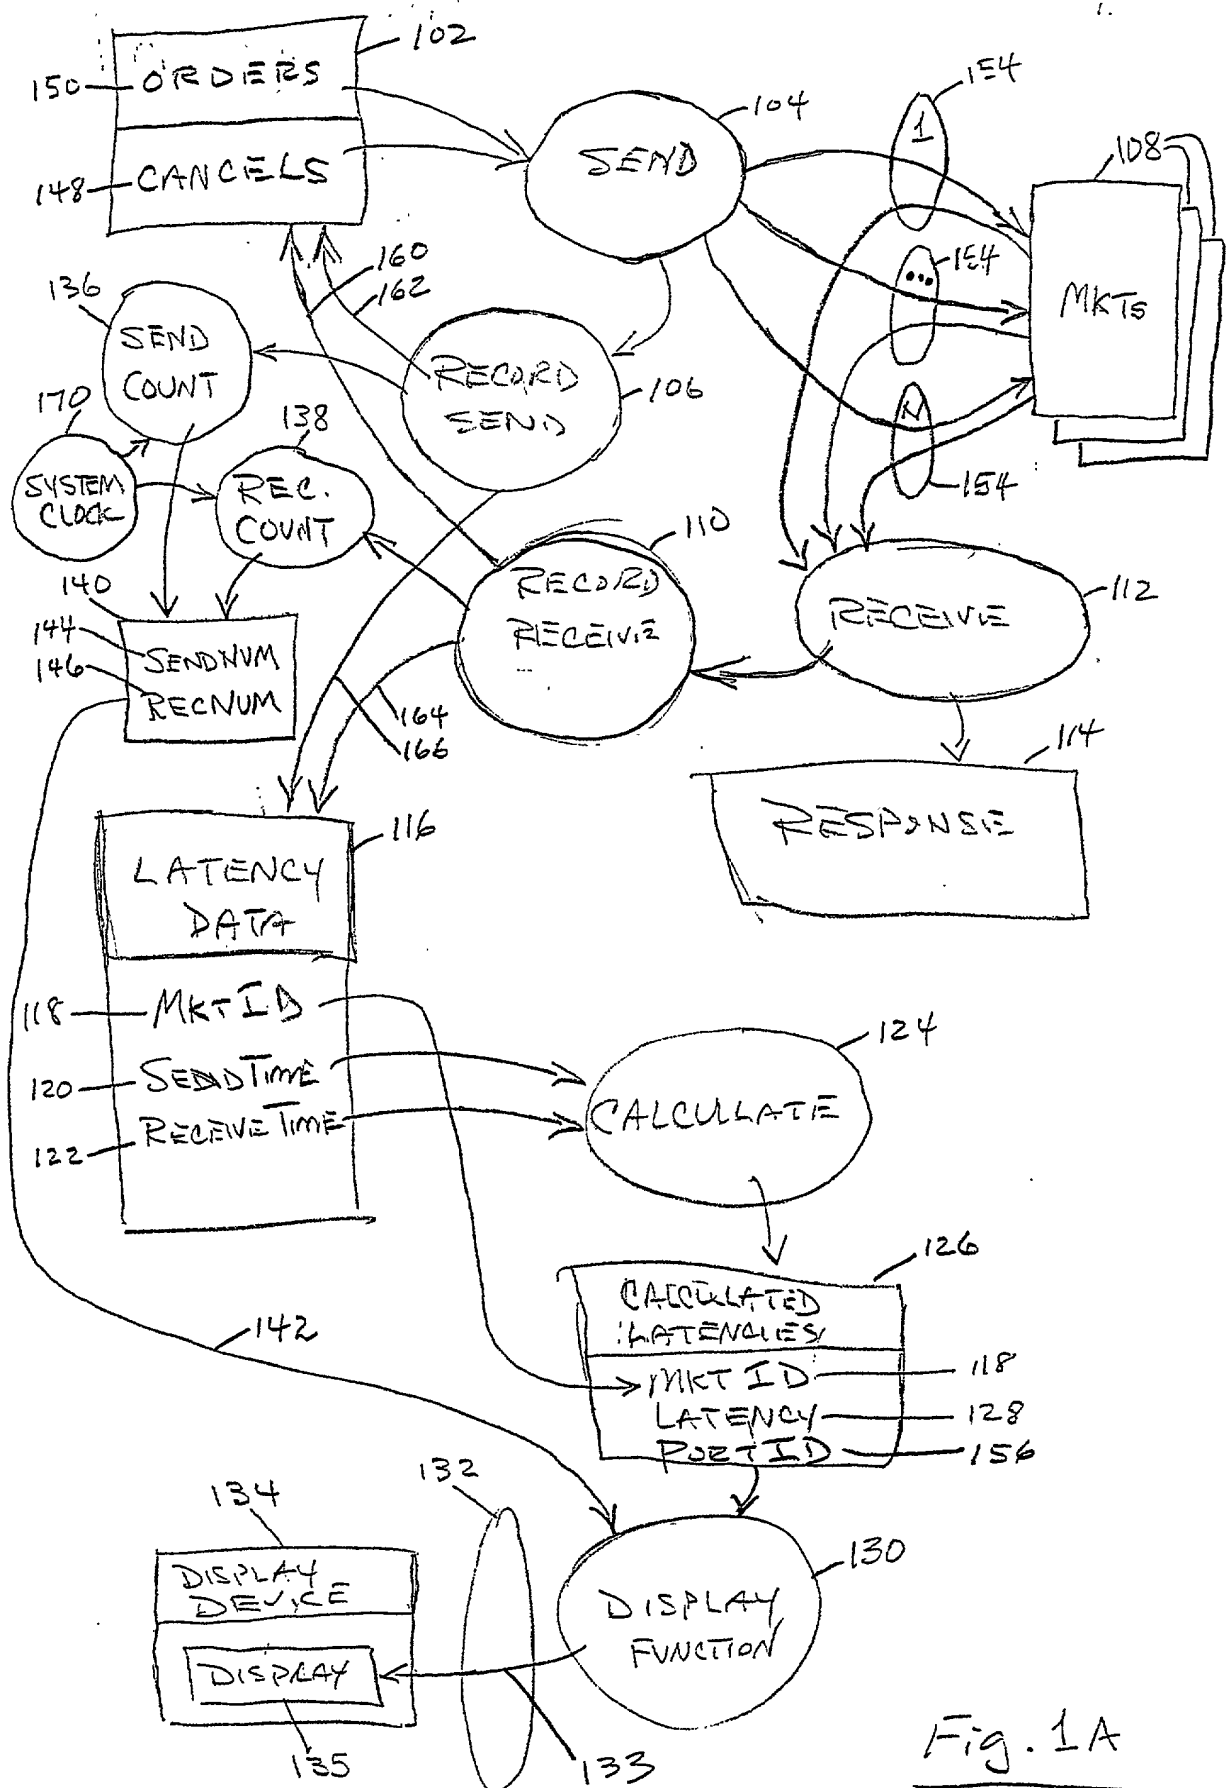 102
150 ORDERS
148 CANCELS
104
SEND
154
1
154
...
N
154
108
MKTS
160
162
136
SEND
COUNT
106
RECORD
SEND
170
SYSTEM
CLOCK
138
REC.
COUNT
110
RECORD
RECEIVE
112
RECEIVE
140
144 SENDNUM
146 RECNUM
164
166
114
RESPONSE
116
LATENCY
DATA
118 MKTID
120 SENDTIME
122 RECEIVETIME
124
CALCULATE
126
CALCULATED
LATENCIES
MKT ID 118
LATENCY 128
PORTID 156
142
132
134
DISPLAY
DEVICE
DISPLAY
135
133
130
DISPLAY
FUNCTION
Fig. 1A